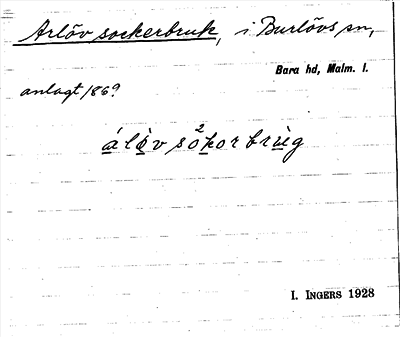 Arlöv sockerbruk, i Burlövs sn,
Bara hd, Malm. l.
anlagt 1869
álö̀v so²korbrùg
I. INGERS 1928